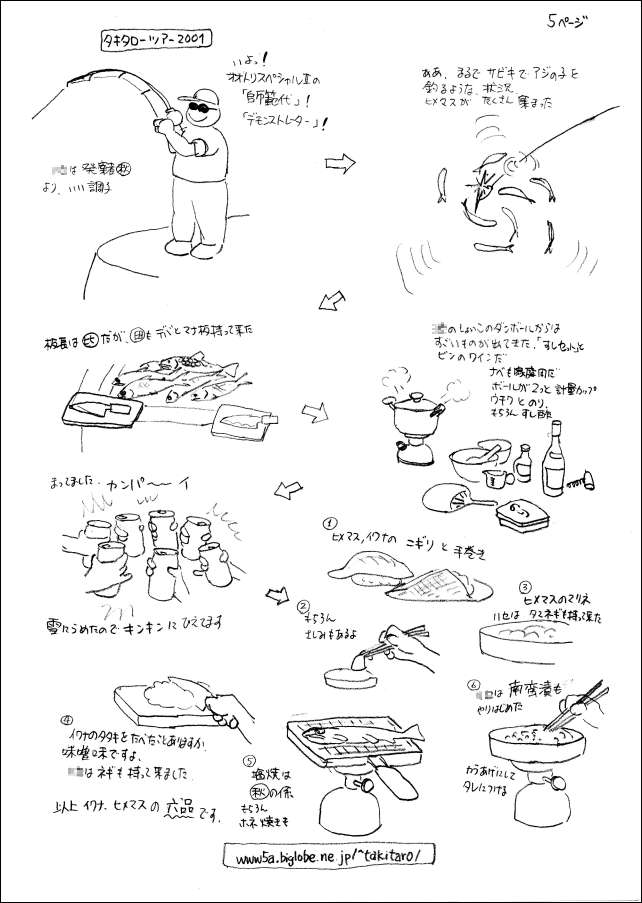 5ページ
タキタローツアー2001
いよっ!
オオトリスペシャルⅡの
「師範代」!
「デモンストレーター」!
は 発案者㊙秋
より、いい調子
ああ、まるで サビキで アジの子を
釣るような 状況
ヒメマスが たくさん 集まった
板長は だが、も デバとマナ板持って来た
のしょいこのダンボールからは
すごいものが出てきた、「すしセット」と
ビンのワインだ
ナベも 用だ
ボールが2つと 計量カップ
ウチワ とのり、
もちろん すし酢
まってました、カンパ〜〜イ
雪にうめたので キンキンに ひえてます
①
ヒメマス、イワナの ニギリ と 手巻き
②
もちろん
さしみもあるよ
③
ヒメマスのマリネ
ハセは タマネギも持って来た
④
イワナのタタキをたべたことありますか、
味噌味ですよ、
は ネギも 持って来ました
以上 イワナ、ヒメマスの 六品 です。
⑤
塩焼は
秋の係
もちろん
ホネ焼きも
⑥
は 南蛮漬も
やりはじめた
カラあげにして
タレにつける
www5a.biglobe.ne.jp/~takitaro/